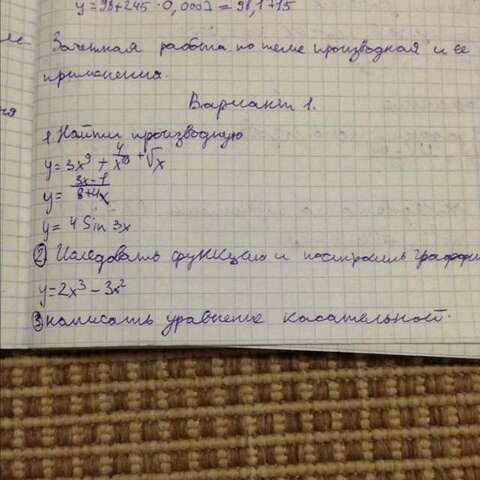 y=98+245·0,0003=98,1+15
Зачетная работа по теме производная и ее
применения.
Вариант 1.
1. Найти производную
y=3x⁹+4/x⁸+√x
y=3x-7/8+4x
y=4 Sin 3x
② Исследовать функцию и построить график
y=2x³-3x²
③ написать уравнение касательной.